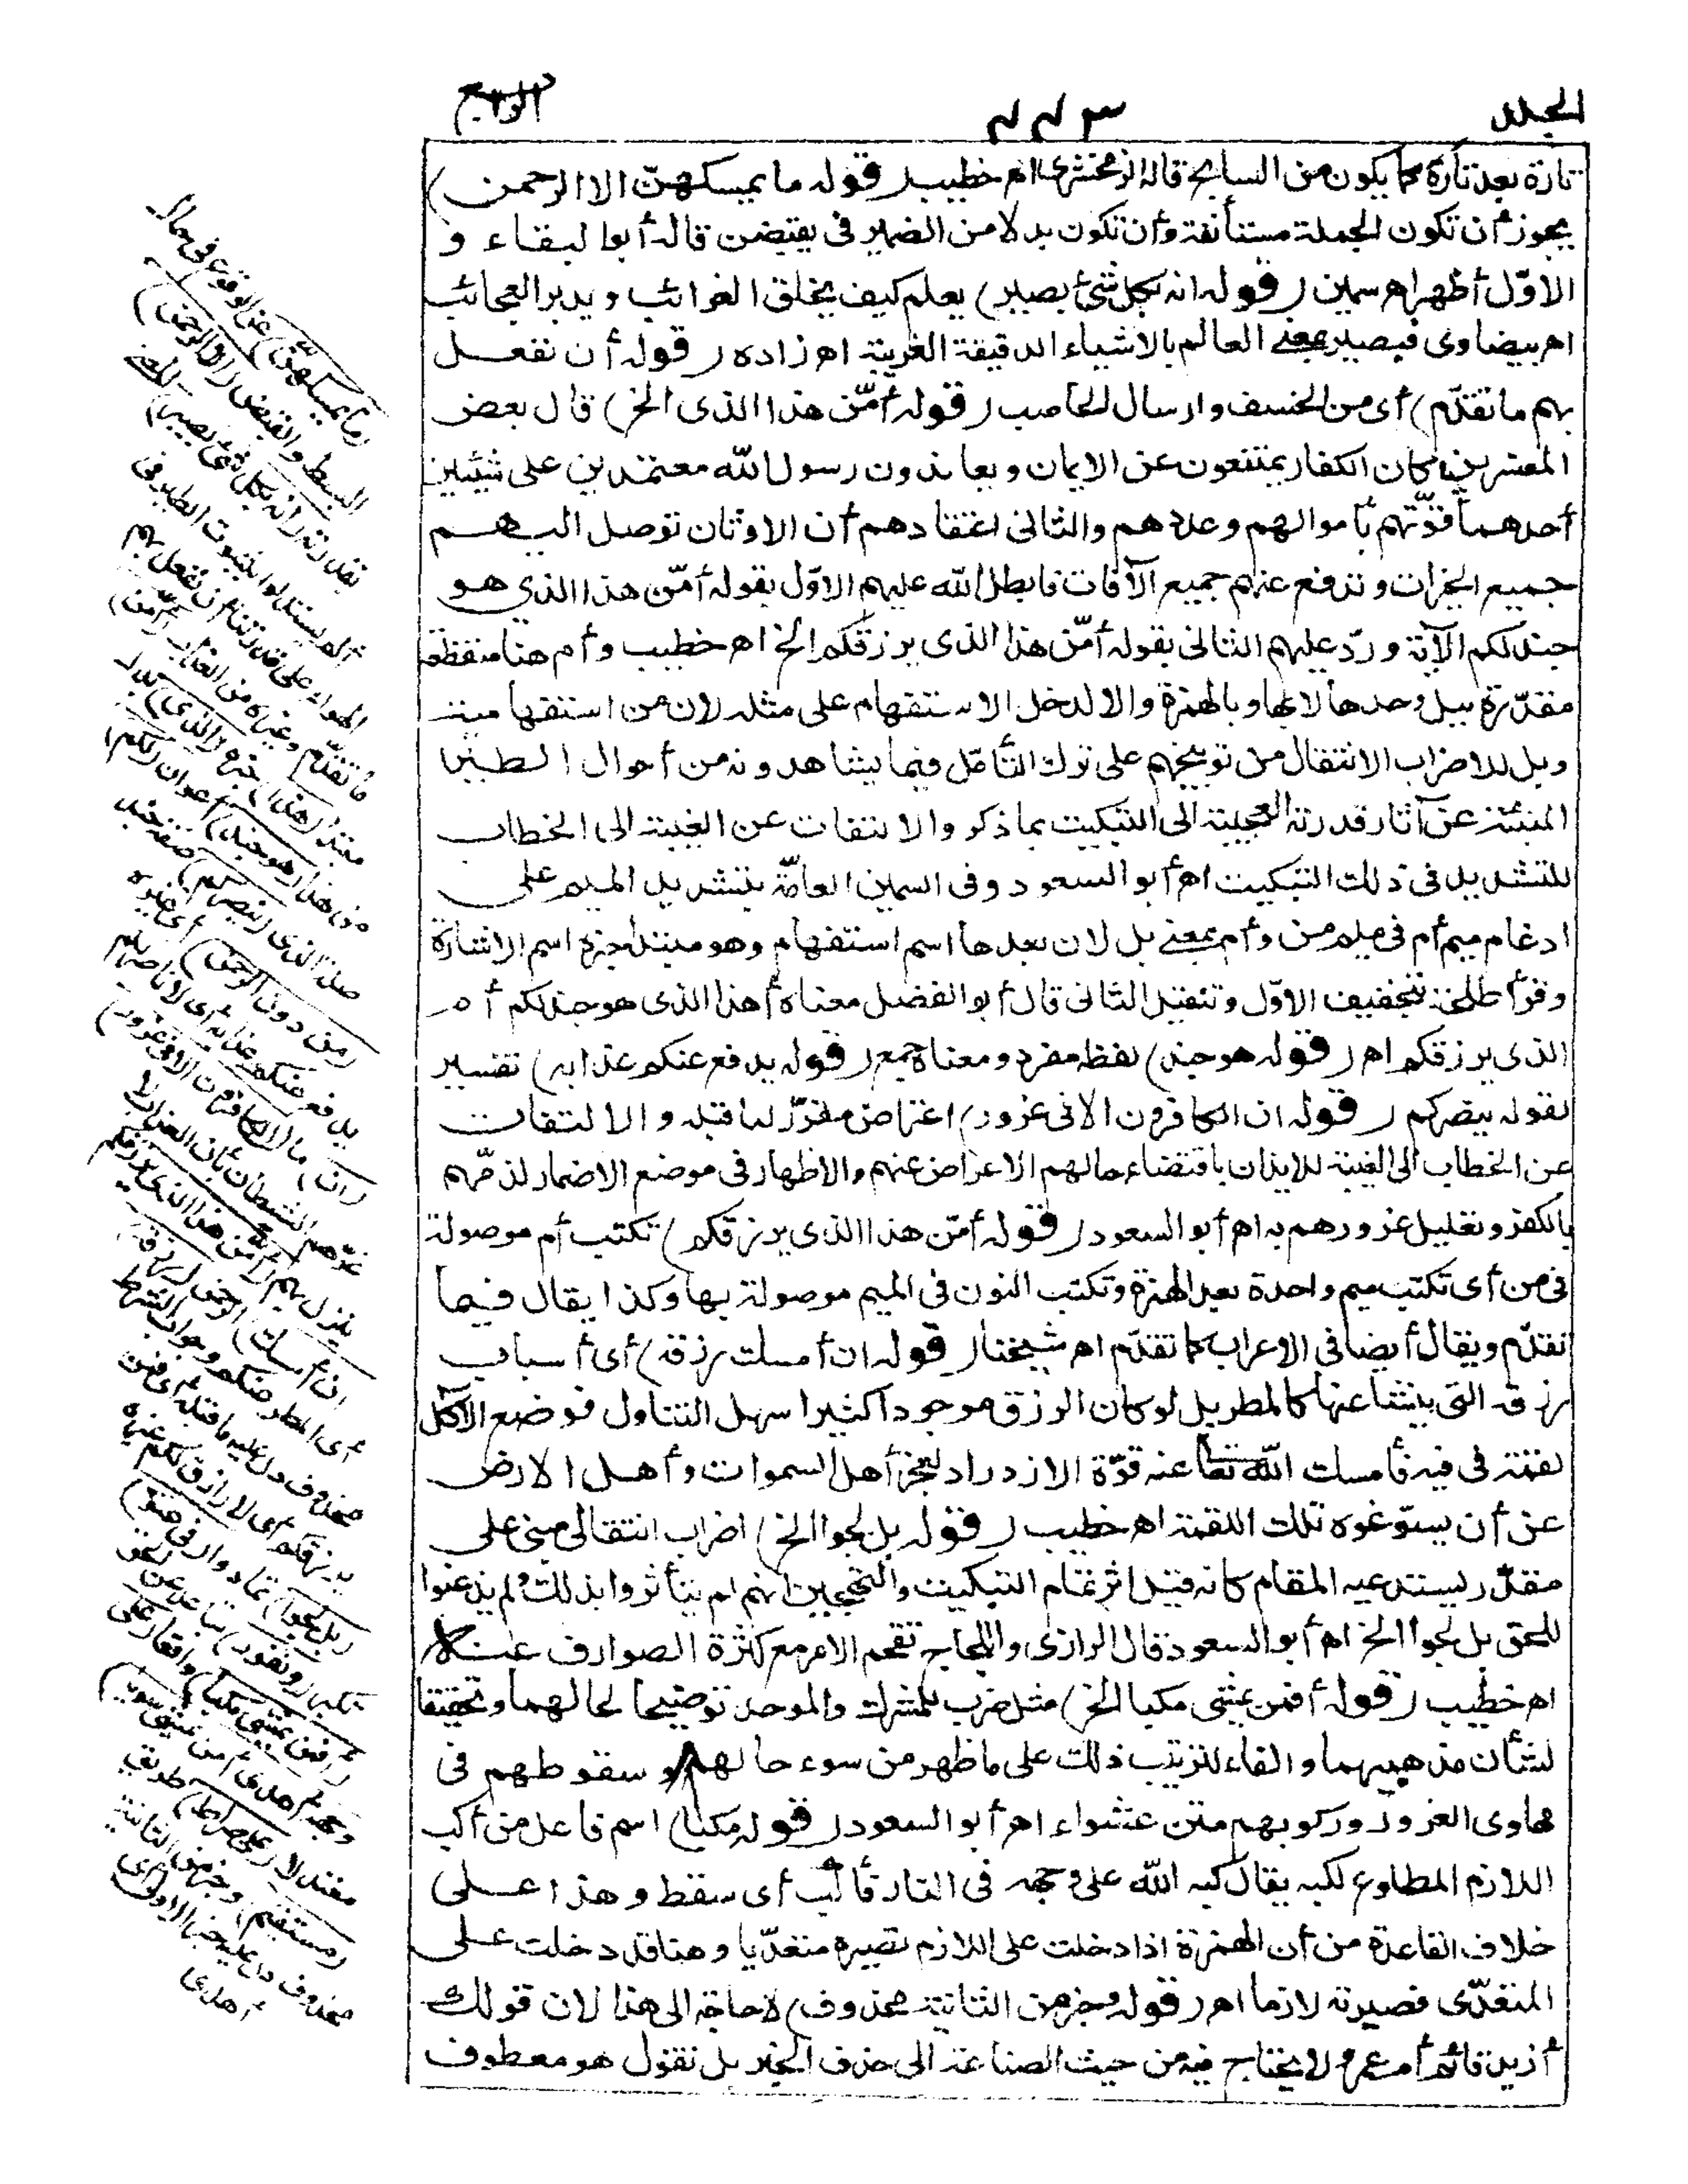 المجلد
٤٤٣
الرابع
تارة بعد تارة كما يكون من السابح قاله الزمخشرى اه خطيب (قوله ما يمسكهنّ الا الرحمن)
يجوز أن تكون الجملة مستأنفة وأن تكون بدلا من الضمير فى يقبضن قاله أبو البقاء و
الاوّل أظهر اه سمين (قوله انه بكل شئ بصير) يعلم كيف يخلق الغرائب ويدبر العجائب
اه بيضاوى فبصير بمعنى العالم بالاشياء الدقيقة الغريبة اه زاده (قوله أن نفعل
بهم ما تقدّم) أى من الخسف وارسال الحاصب (قوله أمّن هذا الذى الخ) قال بعض
المفسرين كان الكفار يمتنعون عن الايمان ويعاندون رسول الله معتمدين على شيئين
أحدهما قوّتهم بأموالهم وعددهم والثانى اعتقادهم أن الاوثان توصل اليهم
جميع الخيرات وتدفع عنهم جميع الآفات فابطل الله عليهم الاوّل بقوله أمّن هذا الذي هو
جند لكم الآية وردّ عليهم الثانى بقوله أمّن هذا الذى يرزقكم الخ اه خطيب وأم هنا منقطعة
مقدّرة ببل وحدها لا بها وبالهمزة والا لدخل الاستفهام على مثله لان من استفهامية
وبل للاضراب الانتقال من توبيخهم على ترك التأمّل فيما يشاهدونه من أحوال الطير
المنبئة عن آثار قدرته العجيبة الى التبكيت بما ذكر والالتفات عن الغيبة الى الخطاب
للتشديد فى ذلك التبكيت اه أبو السعود وفى السمين العامّة بتشديد الميم على
ادغام ميم أم فى ميم من وأم بمعنى بل لان بعدها اسم استفهام وهو مبتدا خبره اسم الاشارة
وقرأ طلحة بتخفيف الاوّل وتثقيل الثانى قال أبو الفضل معناه أهذا الذى هو جند لكم أم
الذى يرزقكم اه (قوله هو جند) لفظه مفرد ومعناه جمع (قوله يدفع عنكم عذابه) تفسير
لقوله ينصركم (قوله ان الكافرون الا فى غرور) اعتراض مقرّر لما قبله والالتفات
عن الخطاب الى الغيبة للايذان باقتضاء حالهم الاعراض عنهم والاظهار فى موضع الاضمار لذمّهم
بالكفر وتعليل غرورهم به اه أبو السعود (قوله أمّن هذا الذى يرزقكم) تكتب أم موصولة
فى من أى تكتب ميم واحدة بعد الهمزة وتكتب النون فى الميم موصولة بها وكذا يقال فيما
تقدّم ويقال أيضا فى الاعراب كما تقدّم اه شيخنا (قوله ان أمسك رزقه) أى أسباب
رزقه التى ينشأ عنها كالمطر بل لو كان الرزق موجودا كثيرا سهل التناول فوضع الآكل
لقمته فى فيه فأمسك الله تعا عنه قوّة الازدراد لعجز أهل السموات وأهل الارض
عن أن يسوّغوه تلك اللقمة اه خطيب (قوله بل لجوا الخ) اضراب انتقالى مبنى على
مقدّر يستدعيه المقام كانه قيل اثر تمام التبكيت والتعجيب انهم لم يتأثروا بذلك ولم يذعنوا
للحق بل لجوا الخ اه أبو السعود قال الرازى واللجاج تقحم الامر مع كثرة الصوارف عنه
اه خطيب (قوله أفمن يمشى مكبا الخ) مثل ضرب للمشرك والموحد توضيحا لحالهما وتحقيقا
لشأن مذهبيهما والفاء لترتيب ذلك على ما ظهر من سوء حالهم وسقوطهم فى
مهاوى الغرور وركوبهم متن عشواء اه أبو السعود (قوله مكبا) اسم فاعل من أكب
اللازم المطاوع لكبه يقال كبه الله على وجهه فى النار فأكب أى سقط وهذا على
خلاف القاعدة من أن الهمزة اذا دخلت على اللازم تصيره متعدّيا وهنا قد دخلت على
المتعدّى فصيرته لازما اه (قوله وخبر من الثانية محذوف) لا حاجة الى هذا لان قولك
أزيد قائم أم عمرو لا يحتاج فيه من حيث الصناعة الى حذف الخبر بل تقول هو معطوف
(ما يمسكهنّ) عن الوقوع فى حال
البسط والقبض (الا الرحمن)
بقدرته (انه بكل شئ بصير) المعنى
ألم يستدلوا بثبوت الطير فى
الهواء على قدرتنا أن نفعل بهم
ما تقدّم وغيره من العذاب (أمّن)
مبتدا (هذا) خبره (الذى) بدل
من هذا (هو جند) أعوان (لكم)
صلة الذى (ينصركم) صفة جند
(من دون الرحمن) أى غيره
يدفع عنكم عذابه أى لا ناصر لكم
(ان) ما (الكافرون الا فى غرور)
غرّهم الشيطان بأن العذاب لا
ينزل بهم (أمّن هذا الذى يرزقكم
ان أمسك) الرحمن (رزقه)
أى المطر عنكم وجواب الشرط
محذوف دل عليه ما قبله أى فمن
يرزقكم أى لا رازق لكم غيره
(بل لجوا) تمادوا (فى عتو)
تكبر (ونفور) تباعد عن الحق
(أفمن يمشى مكبا) واقعا (على
وجهه أهدى أمن يمشى سويا)
معتدلا (على صراط) طريق
(مستقيم) وخبر من الثانية
محذوف دل عليه خبر الاولى أى
أهدى